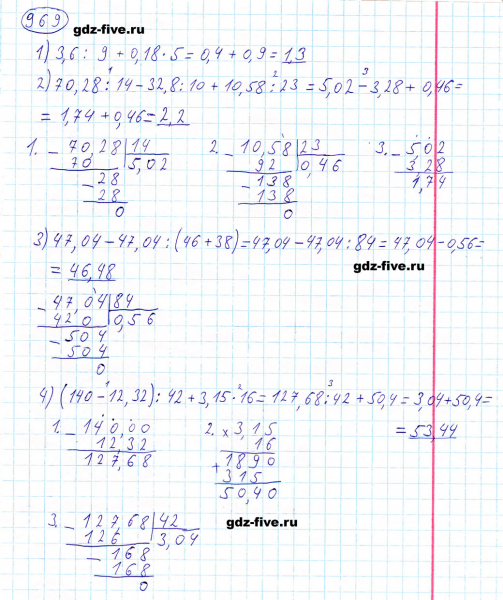 969
gdz-five.ru
1) 3,6 : 9 + 0,18 · 5 = 0,4 + 0,9 = 1,3
2) 70,28 : 14 - 32,8 : 10 + 10,58 : 23 = 5,02 - 3,28 + 0,46 =
= 1,74 + 0,46 = 2,2
1. - 70,28 | 14
70 | 5,02
- 28
28
0
2. - 10,58 | 23
92 | 0,46
- 138
138
0
3. - 5,02
3,28
1,74
3) 47,04 - 47,04 : (46 + 38) = 47,04 - 47,04 : 84 = 47,04 - 0,56 =
= 46,48
gdz-five.ru
- 47,04 | 84
420 | 0,56
- 504
504
0
4) (140 - 12,32) : 42 + 3,15 · 16 = 127,68 : 42 + 50,4 = 3,04 + 50,4 =
= 53,44
1. - 140,00
12,32
127,68
2. × 3,15
16
+ 1890
315
50,40
3. - 127,68 | 42
126 | 3,04
- 168
168
0
gdz-five.ru